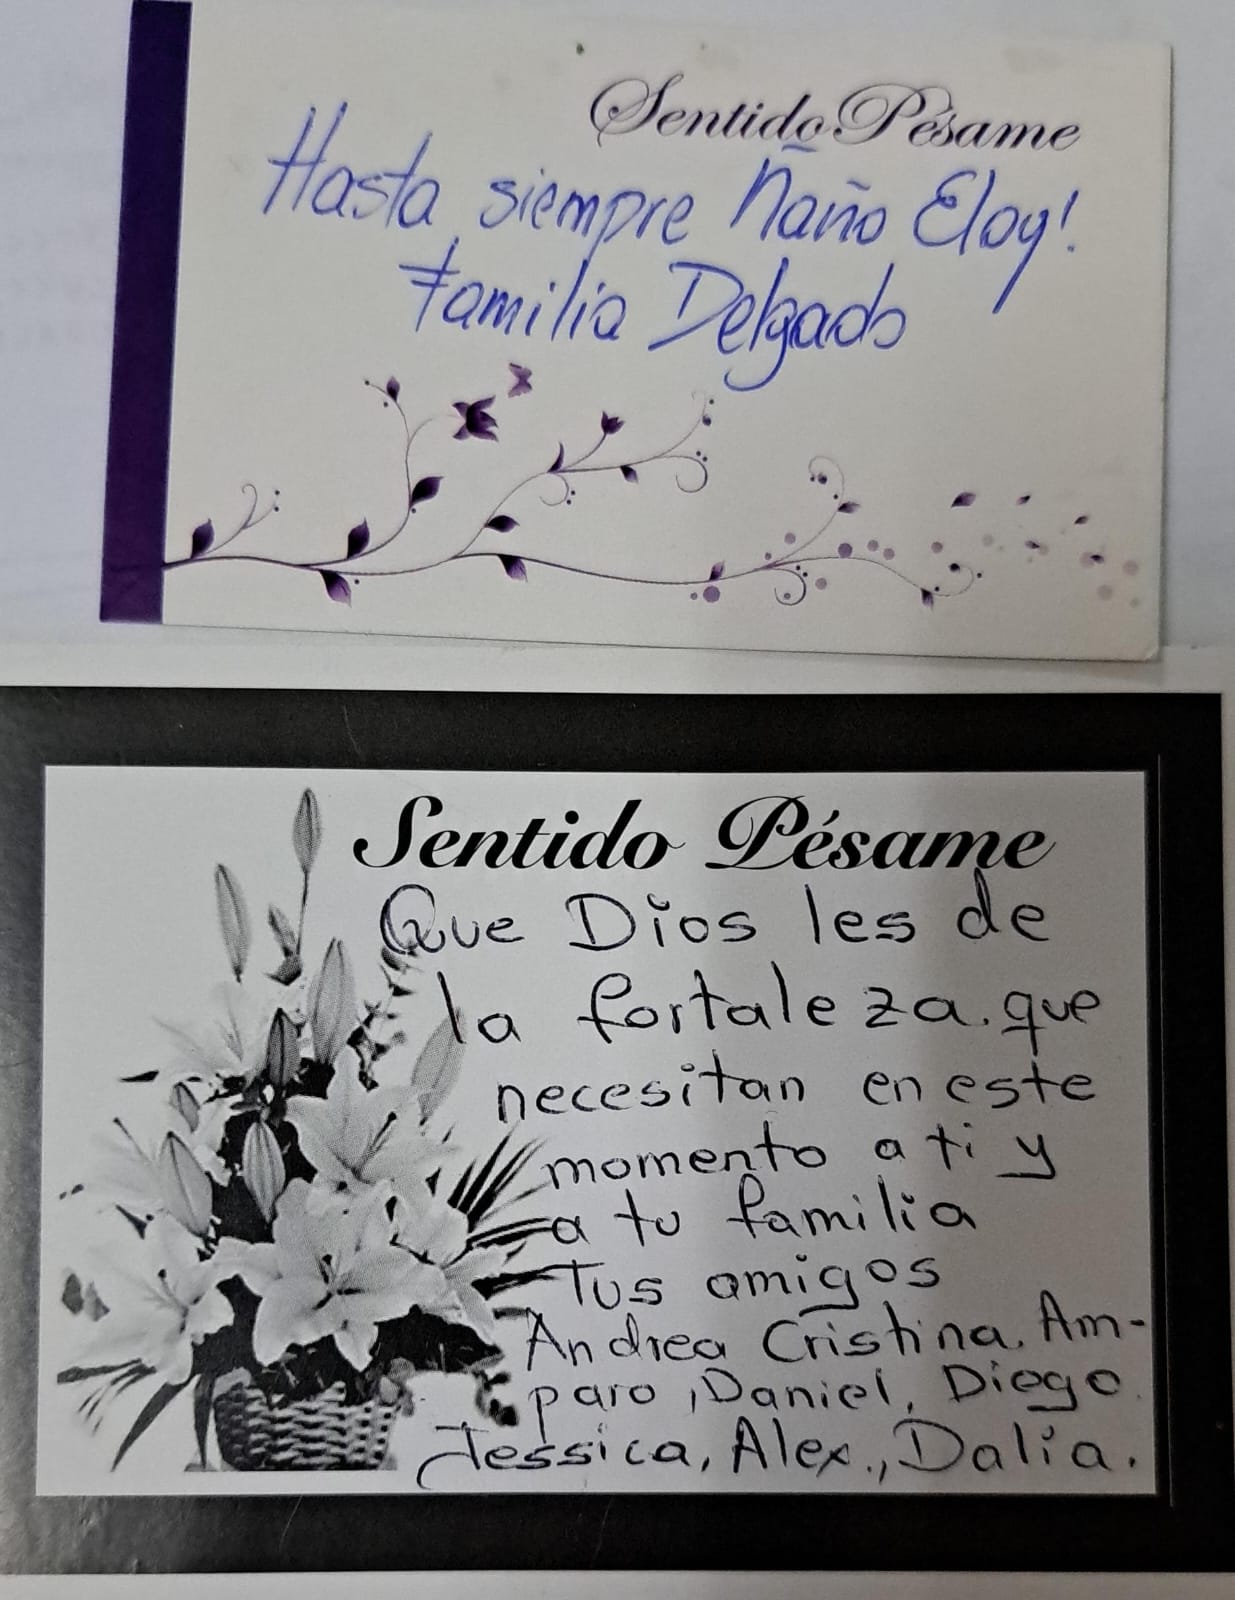 Sentido Pésame
Hasta siempre Ñaño Eloy!
Familia Delgado
Sentido Pésame
Que Dios les de
la fortaleza. que
necesitan en este
momento a ti y
a tu familia
Tus amigos
Andrea Cristina, Am-
paro, Daniel, Diego.
Jessica, Alex., Dalia.